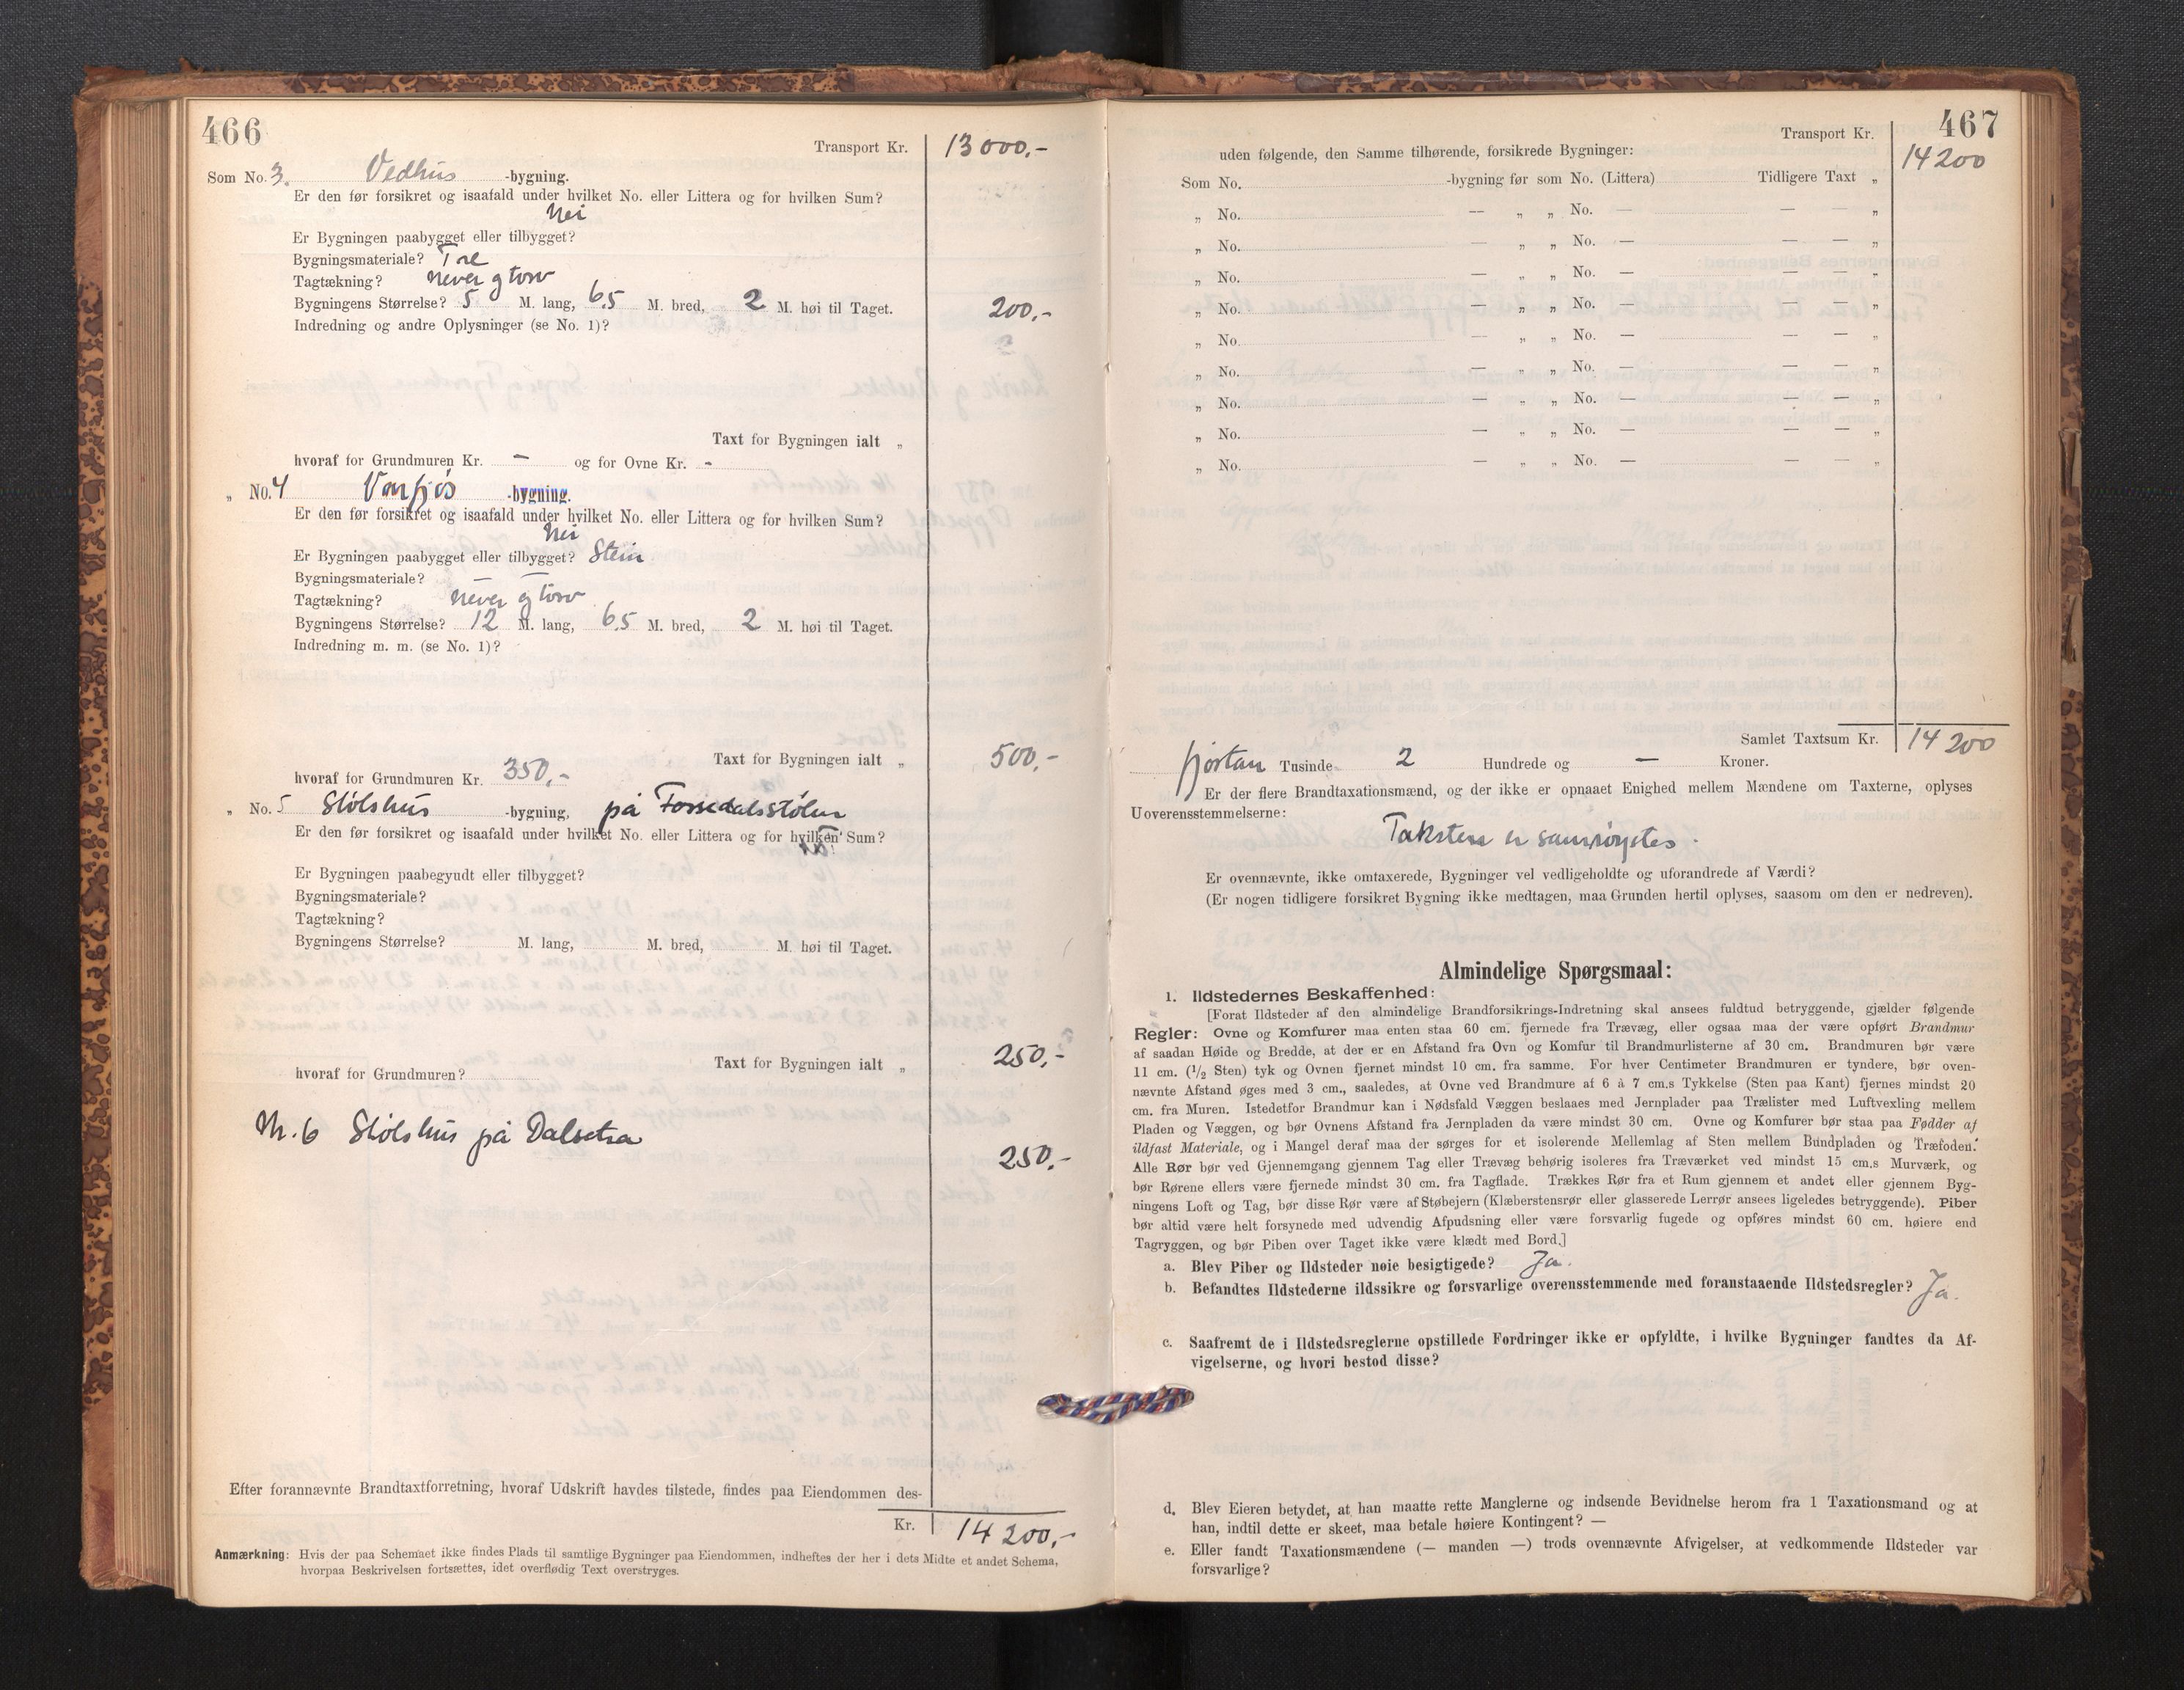 466
Transport Kr. 13000,-
Som No. 3. Vedhus -bygning.
Er den før forsikret og isaafald under hvilket No. eller Littera og for hvilken Sum?
Nei
Er Bygningen paabygget eller tilbygget?
Bygningsmateriale? Tre
Tagtækning? never og torv
Bygningens Størrelse? 5 M. lang, 6,5 M. bred, 2 M. høi til Taget. 200,-
Indredning og andre Oplysninger (se No. 1)?
Taxt for Bygningen ialt „
hvoraf for Grundmuren Kr. – og for Ovne Kr. -
„ No. 4 Vårfjós -bygning.
Er den før forsikret og isaafald under hvilket No. eller Littera og for hvilken Sum?
Nei
Er Bygningen paabygget eller tilbygget? Stein
Bygningsmateriale?
Tagtækning? never og torv
Bygningens Størrelse? 12 M. lang, 6,5 M. bred, 2 M. høi til Taget.
Indredning m. m. (se No. 1)?
Taxt for Bygningen ialt „ 500,-
hvoraf for Grundmuren Kr. 350,-
„ No. 5 Stølshus -bygning, på Fossedalsstølen
Er den før forsikret og isaafald under hvilket No. eller Littera og for hvilken Sum?
Er Bygningen paabegyudt eller tilbygget?
Bygningsmateriale?
Tagtækning?
Bygningens Størrelse? M. lang, M. bred, M. høi til Taget.
Taxt for Bygningen ialt „ 250,-
hvoraf for Grundmuren?
Nr. 6 Stølshus på Dalsetra 250,-
Efter forannævnte Brandtaxtforretning, hvoraf Udskrift havdes tilstede, findes paa Eiendommen des-
Kr. 14200,-
Anmærkning: Hvis der paa Schemaet ikke findes Plads til samtlige Bygninger paa Eiendommen, indheftes der her i dets Midte et andet Schema,
hvorpaa Beskrivelsen fortsættes, idet overflødig Text overstryges.
467
Transport Kr. 14200
uden følgende, den Samme tilhørende, forsikrede Bygninger:
Som No. -bygning før som No. (Littera) Tidligere Taxt „
„ No. — „ „ No. — — — „
„ No. — „ „ No. — — — „
„ No. — „ „ No. — — — „
„ No. — „ „ No. — — — „
„ No. — „ „ No. — — — „
„ No. — „ „ No. — — — „
„ No. — „ „ No. — — — „
„ No. — „ „ No. — — — „
„ No. — „ „ No. — — — „
Samlet Taxtsum Kr. 14200
fjortan Tusinde 2 Hundrede og — Kroner.
Er der flere Brandtaxationsmænd, og der ikke er opnaaet Enighed mellem Mændene om Taxterne, oplyses
Uoverensstemmelserne:
Taksten er samrøystes.
Er ovennævnte, ikke omtaxerede, Bygninger vel vedligeholdte og uforandrede af Værdi?
(Er nogen tidligere forsikret Bygning ikke medtagen, maa Grunden hertil oplyses, saasom om den er nedreven).
Almindelige Spørgsmaal:
1. Ildstedernes Beskaffenhed:
[Forat Ildsteder af den almindelige Brandforsikrings-Indretning skal ansees fuldtud betryggende, gjælder følgende
Regler: Ovne og Komfurer maa enten staa 60 cm. fjernede fra Trævæg, eller ogsaa maa der være opført Brandmur
af saadan Høide og Bredde, at der er en Afstand fra Ovn og Komfur til Brandmurlisterne af 30 cm. Brandmuren bør være
11 cm. (1/2 Sten) tyk og Ovnen fjernet mindst 10 cm. fra samme. For hver Centimeter Brandmuren er tyndere, bør oven-
nævnte Afstand øges med 3 cm., saaledes, at Ovne ved Brandmure af 6 à 7 cm.s Tykkelse (Sten paa Kant) fjernes mindst 20
cm. fra Muren. Istedetfor Brandmur kan i Nødsfald Væggen beslaaes med Jernplader paa Trælister med Luftvexling mellem
Pladen og Væggen, og bør Ovnens Afstand fra Jernpladen da være mindst 30 cm. Ovne og Komfurer bør staa paa Fødder af
ildfast Materiale, og i Mangel deraf maa der sørges for et isolerende Mellemlag af Sten mellem Bundpladen og Træfoden.
Alle Rør bør ved Gjennemgang gjennem Tag eller Trævæg behørig isoleres fra Træværket ved mindst 15 cm.s Murværk, og
bør Rørene ellers være fjernede mindst 30 cm. fra Tagflade. Trækkes Rør fra et Rum gjennem et andet eller gjennem Byg-
ningens Loft og Tag, bør disse Rør være af Støbejern (Klæberstensrør eller glasserede Lerrør ansees ligeledes betryggende). Piber
bør altid være helt forsynede med udvendig Afpudsning eller være forsvarlig fugede og opføres mindst 60 cm. høiere end
Tagryggen, og bør Piben over Taget ikke være klædt med Bord.]
a. Blev Piber og Ildsteder nøie besigtigede? Ja.
b. Befandtes Ildstederne ildssikre og forsvarlige overensstemmende med foranstaaende Ildstedsregler? Ja.
c. Saafremt de i Ildstedsreglerne opstillede Fordringer ikke er opfyldte, i hvilke Bygninger fandtes da Af-
vigelserne, og hvori bestod disse?
d. Blev Eieren betydet, at han maatte rette Manglerne og indsende Bevidnelse herom fra 1 Taxationsmand og at
han, indtil dette er skeet, maa betale høiere Kontingent? —
e. Eller fandt Taxationsmændene (— manden —) trods ovennævnte Afvigelser, at vedkommende Ildsteder var
forsvarlige?